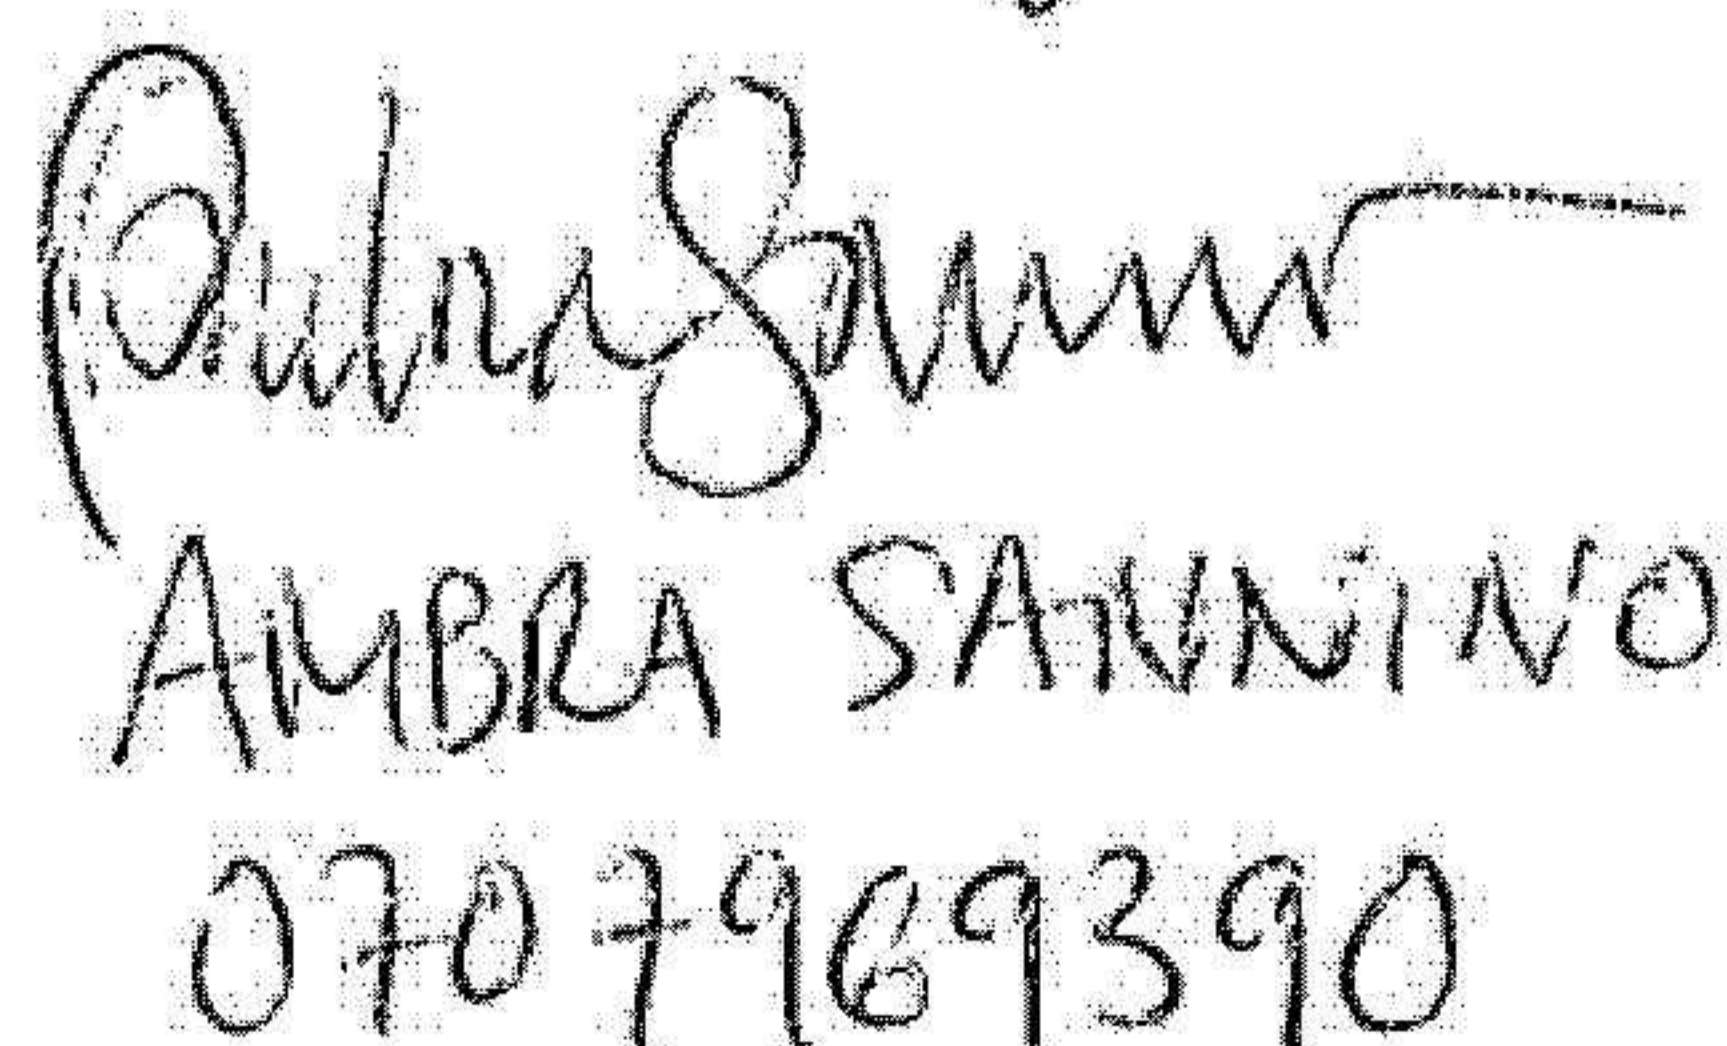 Ambra Sannino
AMBRA SANNINO
070 7969390